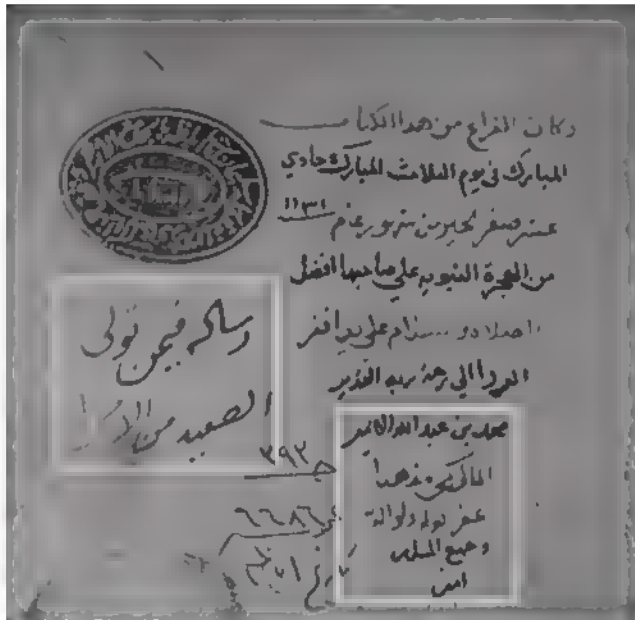 وكان الفراغ من هذا الكتاب
المبارك في يوم الثلاث المبارك حادي
عشر صفر الخير من شهور عام ١١٣١
من الهجرة النبويه علي صاحبها افضل
الصلاة و السلام علي يد افقر
الورا الي رحمة ربه القدير
محمد بن عبد الله
المالكي مذهبا
غفر له ولوالديه
وجميع المسلمين
امين
رساله فيمن تولى
الصعيد من الامرا
٣٩٢
٦٦٨٦
تاريخ